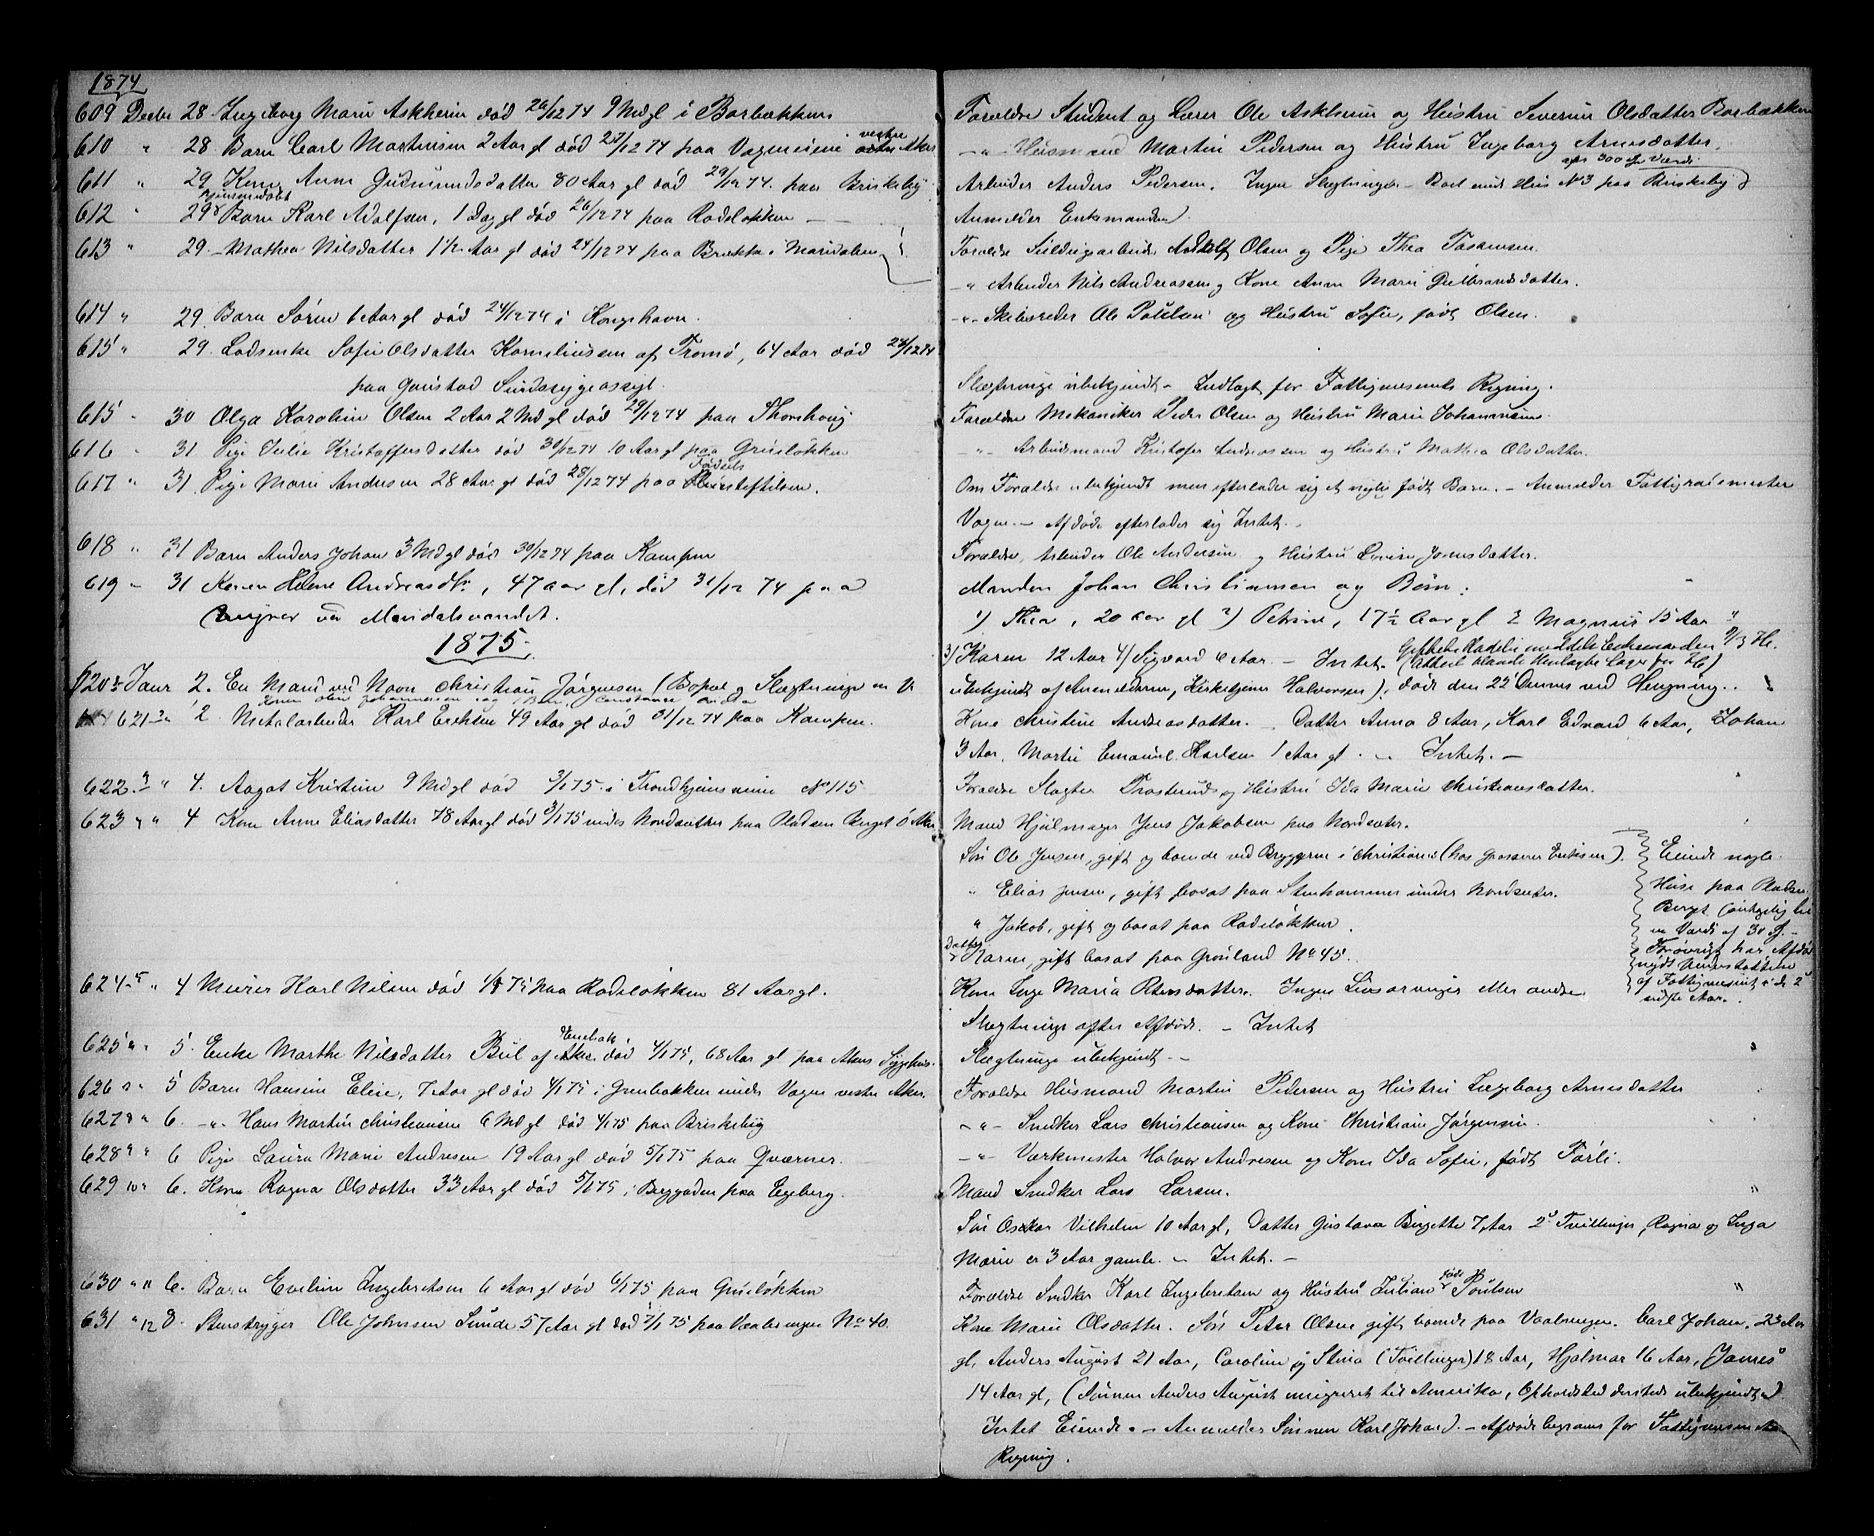 1874
609 Decbr 28. Ingeborg Marie Askheim død 26/12 74 9 Mdgl i Barbakken
610 " 28. Barn Carl Martinsen 2 Aar gl død 27/12 74 paa vestre Aker
611 " 29 Kone Anne Gudmundsdatter 80 Aar gl død 29/12 74 paa Briskeby
hjemmedøbt
612 " 29 Barn Karl Adolfsen, 1 Dag gl død 26/12 74 paa Rodeløkken —
613 " 29. — Mathea Nilsdatter 1½ Aar gl død 24/12 74 paa Brække i Maridalen
614 " 29. Barn Søren 1 Aar gl død 24/12 74 i Kongshavn.
615 " 29. Lodsenke Sofie Olsdatter Korneliussen af Tromø, 64 Aar død 28/12 74
paa Gaustad Sindssygeasyl.
615 - 30 Olga Karoline Olsen 2 Aar 2 Mdgl død 29/12 74 paa Thorshaug
616 - 31. Pige Julie Kristoffersdatter død 30/12 74 10 Aar gl paa Grünløkken
617 " 31. Pige Marie Andersen 28 Aar gl død 28/12 74 paa Fødselsstiftelsen.
618 " 31 Barn Anders Johan 3 Mdgl død 30/12 74 paa Kampen
619 " 31 Karen Helene Andreasdtr, 47 aar gl, død 31/12 74 paa
ved Maridalsvandet.
1875.
620 Janr 2. En Mand ved Navn Christian Jørgensen (Bopæl og Slægtninge
621 " 2. Metalarbeider Karl Eriksen 49 Aar gl død 31/12 74 paa Kampen.
622 3 " 4. Aagot Kristine 9 Mdgl død 3/1 75 i Trondhjemsveien No 115
623 4 " 4 Kone Anne Eliasdatter 78 Aar gl død 3/1 75 under Nordsæter paa Pladsen Berget Ø Aker
624 5 " 4 Murer Karl Nilsen død 1/1 75 paa Rodeløkken 81 Aar gl.
Enebak
625 " 5. Enke Marthe Nilsdatter Biil af død 4/1 75, 68 Aar gl paa Akers Sygehus.
626 " 5 Barn Hansine Elise, 7 Aar gl død 4/1 75 i Grenbakken under Vogne vestre Aker.
627 8 " 6. —"— Hans Martin Christiansen 6 Mdgl død 4/1 75 paa Briskeby
628 9 " 6 Pige Laura Marie Andresen 19 Aar gl død 5/1 75 paa Qværner.
629 10 " 6. Kone Ragna Olsdatter 33 Aar gl død 5/1 75 i Byggaden paa Egeberg.
630 " 11 6. Barn Eveline Ingebretsen 6 Aar gl død 6/1 75 paa Grünløkken
631 " 12 8. Stenhugger Ole Johnsen Sunde 57 Aar gl død 7/1 75 paa Vaaleringen No 40.
Forældre Student og Lærer Ole Askheim og Hustru Severine Olsdatter Barbakken
—"— Husmand Martin Pedersen og Hustru Ingeborg Arnesdatter.
Arbeider Anders Pedersen. Ingen Slægtninge — Boet eier Hus No 3 paa Briskeby
Anmelder Enkemanden.
Forældre Adolf Olsen og Pige Thea
—"— Arbeider Nils Andreassen og Kone Anne Marie Gulbrandsdatter.
—"— Skibsreder Ole Poulsen og Hustru Sofie, født Olsen.
Slægtninge ubekjendt — Indlagt for Fattigvæsenets Regning.
Forældre Mekaniker Peder Olsen og Hustru Marie Johannesen.
—"— Arbeidsmand Kristoffer Andreassen og Hustru Mathea Olsdatter.
Om Forældre ubekjendt men efterlader sig et nylig født Barn. — Anmelder Fattigforstander
Vogne. — Afdøde efterlader sig Intet. —
Forældre, Arbeider Ole Andersen og Hustru Lovise Jonsdatter.
Manden Johan Christiansen og Børn:
1) Thea, 20 aar gl 2) Petrine, 17½ Aar gl 2 Magnus 15 Aar "
3) Karen 12 Aar 4) Sigvard 6 Aar. — Intet.
ubekjendt af Anmelderen, Kirketjener Halvorsen). døde den 22 Dennes ved Hængning.
Kone Christine Andreasdatter. Datter Anna 8 Aar, Karl Edvard 6 Aar, Johan
3 Aar, Martin Emanuel Karlsen 1 Aar gl. — Intet. —
Forældre Slagter og Hustru Ida Marie Christiansdatter.
Mand Hjulmager Jens Jakobsen paa Nordsæter.
Søn Ole Jensen, gift og boende ved Bryggerne i Christiania (hos Grosserer Eriksen).
" Elias Jensen, gift, bosat paa Stenhammer under Nordsæter.
" Jakob, gift og bosat paa Rodeløkken.
Datter Karen, gift bosat paa Grønland No 45.
Eiende nogle
Huse paa Pladsen
Berget til
en Værdi af 30 Sp. —
Forøvrigt har Afdøde
nydt Understøttelse
af Fattigvæsenet i de 2
sidste Aar.
Kone Maria Petersdatter. Ingen Livsarvinger eller andre
Slægtninge efter Afdøde. — Intet
Slægtninge ubekjendt. —
Forældre Husmand Martin Pedersen og Hustru Ingeborg Arnesdatter
—"— Snedker Lars Christiansen og Kone Christiane Jørgensen.
—"— Værkmester Halvor Andresen og Kone Ida Sofie, født Førli.
Mand Snedker Lars Larsen.
Søn Oskar Vilhelm 10 Aar gl, Datter Gustava Birgitte 7 Aar 2 Tvillinger, Ragna og Inga
Marie er 3 Aar gamle. — Intet. —
Forældre Snedker Karl Ingebretsen og Hustru Juliane født Poulsen
Kone Marie Olsdatter. Søn Peter Olsen gift boende paa Vaaleringen. Carl Johan, 23 Aar
gl, Anders August 21 Aar, Caroline og Stina (Tvillinger) 18 Aar, Hjalmar 16 Aar, James
14 Aar gl, (Sønnen Anders August emigreret til Amerika, Opholdssted dersteds ubekjendt).
Intet Eiende. — Anmelder Sønnen Karl Johan. — Afdøde begraves for Fattigvæsenets
Regning.